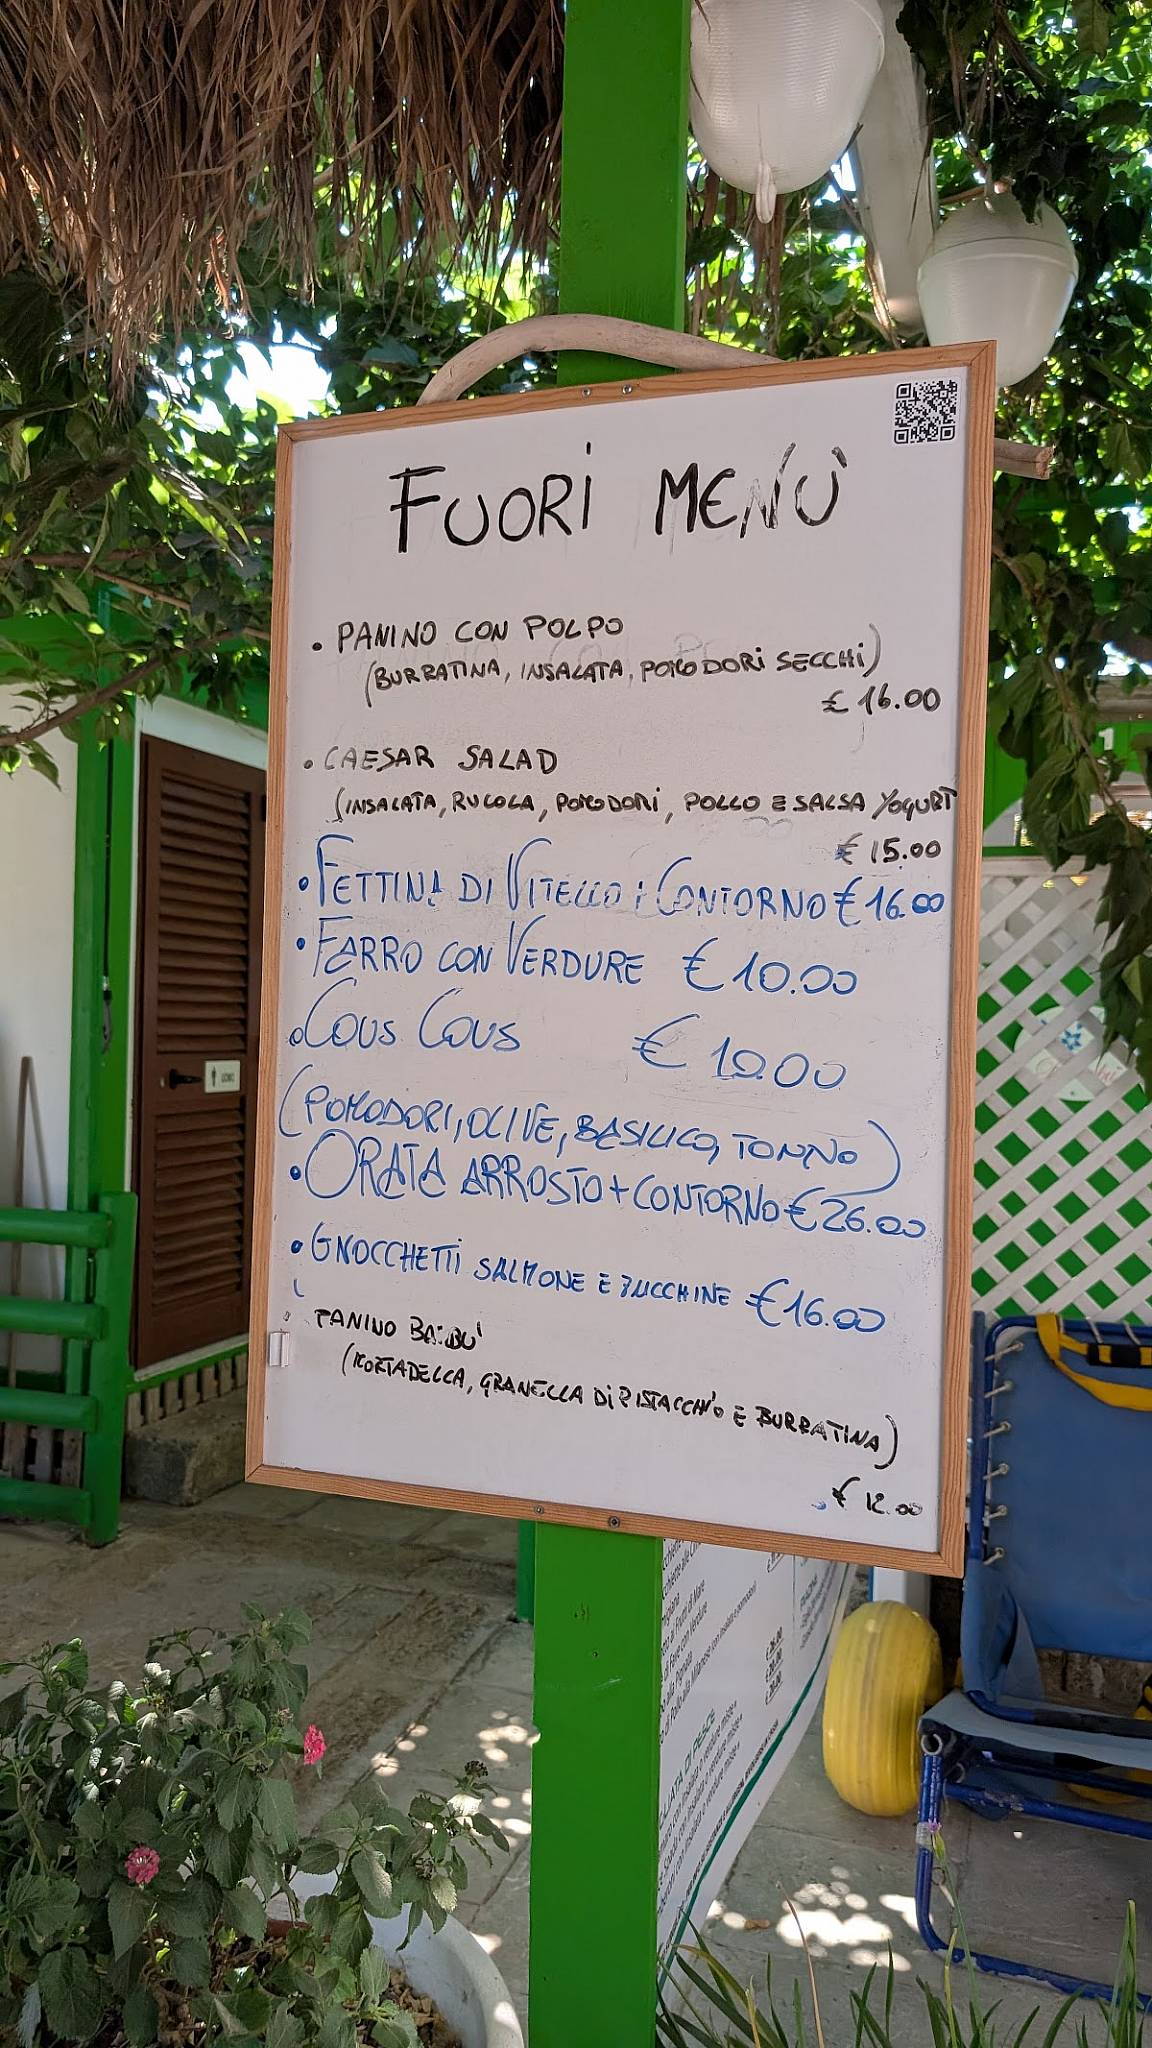 FUORI MENÙ
• PANINO CON POLPO
(BURRATINA, INSALATA, POMODORI SECCHI)
€ 16.00
• CAESAR SALAD
(INSALATA, RUCOLA, POMODORI, POLLO E SALSA YOGURT
€ 15.00
• FETTINA DI VITELLO + CONTORNO € 16.00
• FARRO CON VERDURE € 10.00
• COUS COUS € 10.00
(POMODORI, OLIVE, BASILICO, TONNO)
• ORATA ARROSTO + CONTORNO € 26.00
• GNOCCHETTI SALMONE E ZUCCHINE € 16.00
PANINO
(MORTADELLA, GRANELLA DI PISTACCHIO E BURRATINA)
€ 12.00
UOMO
1